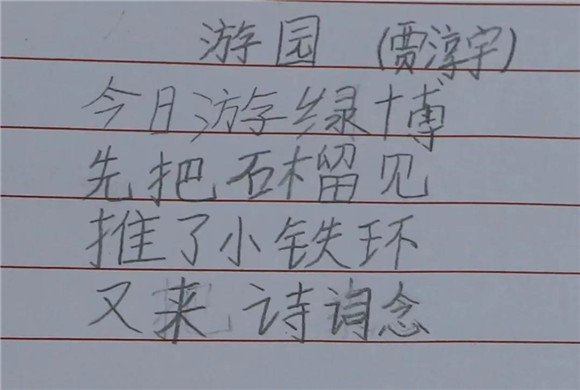 游园 (贾淳宇)
今日游绿博
先把石榴见
推了小铁环
又来诗词念